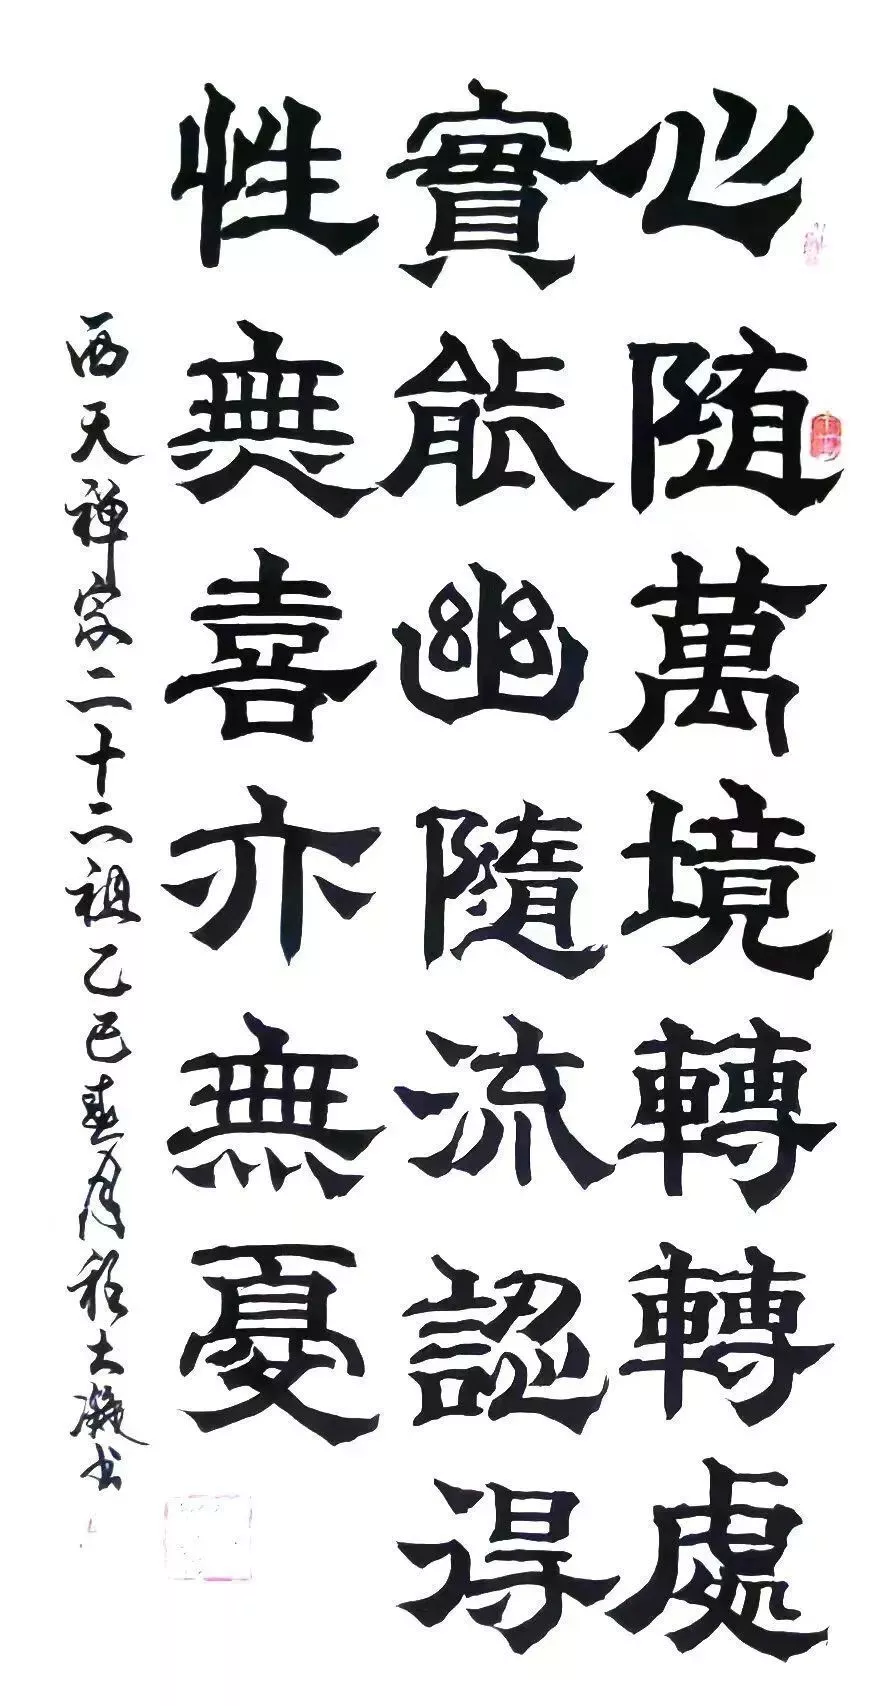 心随萬境轉轉處
實能幽隨流認得
性無喜亦無憂
西天禅宗二十二祖乙巳春月程大凝书